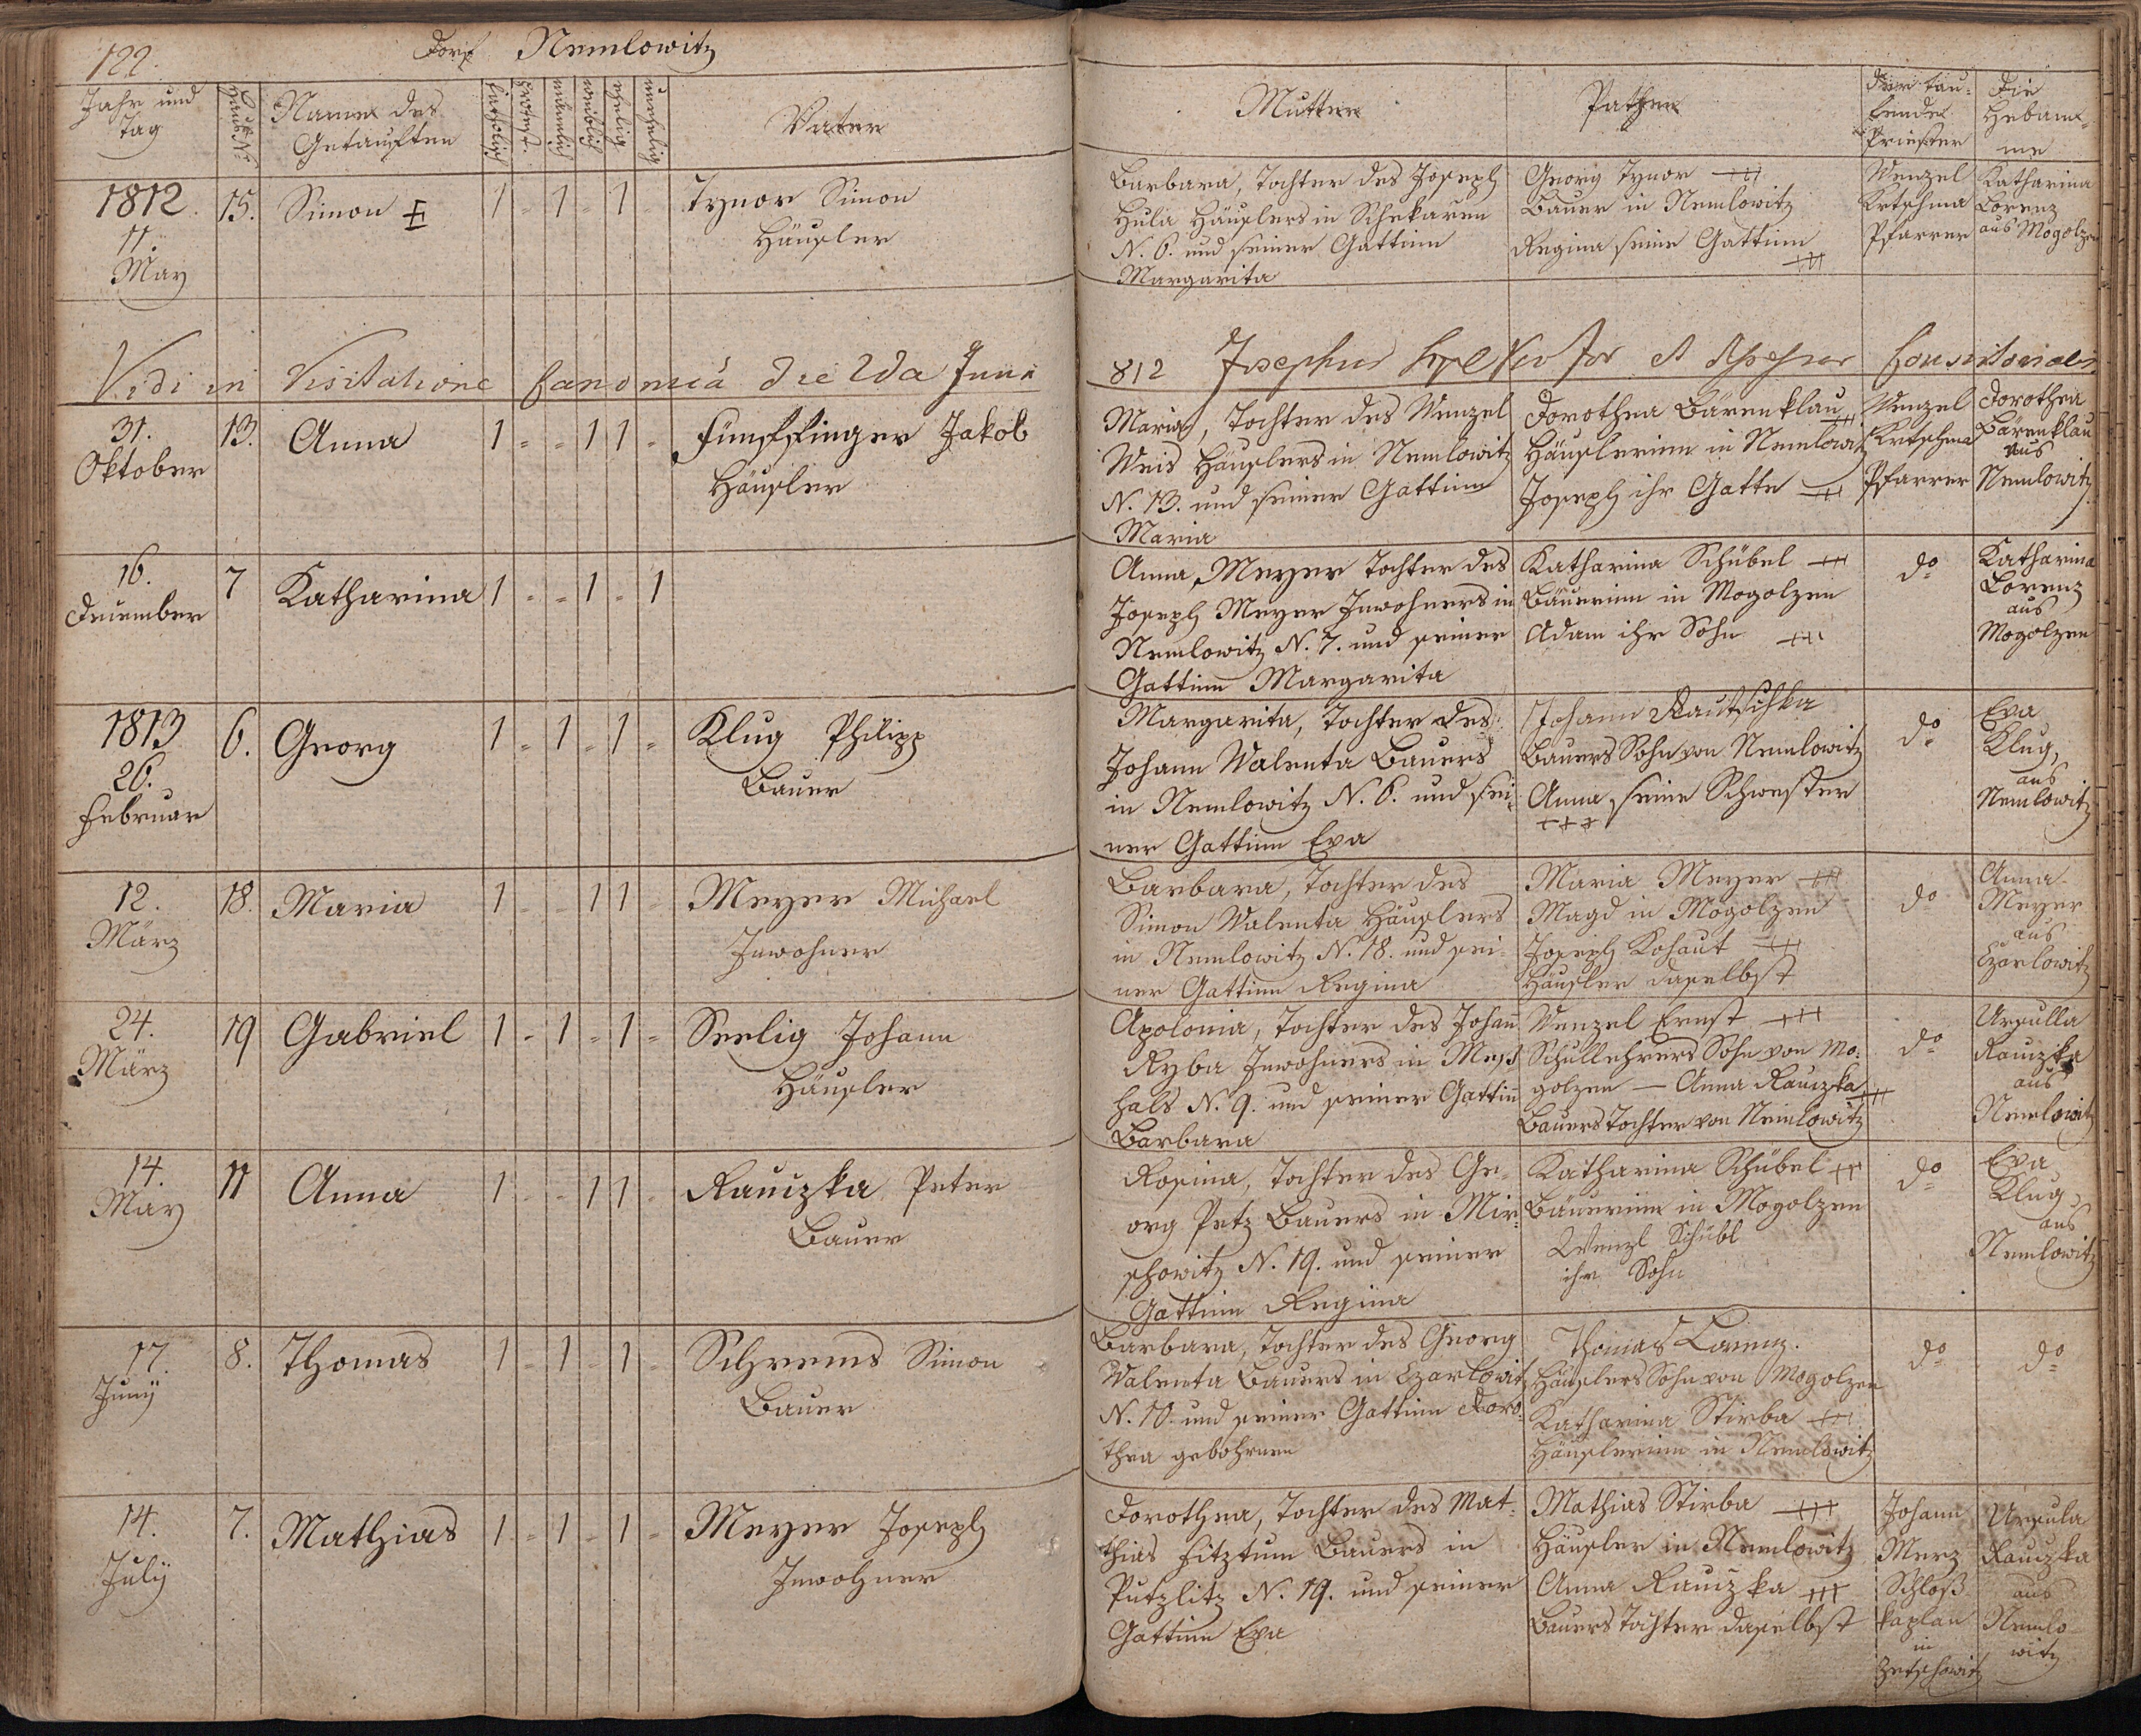 122.
Dorf Nemlowitz
Jahr und Tag
Haus N.
Name des Getauften
katholisch
protest.
männlich
weiblich
ehelig
unehelig
Vater
Mutter
Pathen
Der taufende Priester
Die Hebamme
1812. 11. May
15.
Simon
1 - 1 - 1
Tynor Simon
Häusler
Barbara, Tochter des Joseph
Hula Häuslers in Schekaren
N. 6. und seiner Gattinn
Margarita
Georg Tynor +++
Bauer in Nemlowitz
Regina seine Gattinn
+++
Wenzel
Krtschma
Pfarrer
Katharina
Lorenz
aus Mogolzen
Vidi in Visitatione Canonica die 2da Juni 812 Josephus et Consistorialis
31.
Oktober
13.
Anna
1 - - 1 1 -
Fünffinger Jakob
Häusler
Maria, Tochter des Wenzel
Weis Häuslers in Nemlowitz
N. 13. und seiner Gattinn
Maria
Dorothea Bärenklau +++
Häuslerinn in Nemlowitz
Joseph ihr Gatte +++
Wenzel
Krtschma
Pfarrer
Dorothea
Bärenklau
aus
Nemlowitz
16.
December
7
Katharina
1 - - 1 - 1
Anna Meyer Tochter des
Joseph Meyer Inwohners in
Nemlowitz N. 7. und seiner
Gattinn Margarita
Katharina Schübel +++
Bäuerinn in Mogolzen
Adam ihr Sohn +++
do
Katharina
Lorenz
aus
Mogolzen
1813
26.
Februar
6.
Georg
1 - 1 - 1 -
Klug Philipp
Bauer
Margarita, Tochter des
Johann Walenta Bauers
in Nemlowitz N. 6. und sei-
ner Gattinn Eva
Johann Rautschka
Bauers Sohn von Nemlowitz
Anna seine Schwester
+++
do
Eva
Klug,
aus
Nemlowitz
12.
März
18.
Maria
1 - - 1 1 -
Meyer Michael
Inwohner
Barbara, Tochter des
Simon Walenta Häuslers
in Nemlowitz N. 18. und sei-
ner Gattinn Regina
Maria Meyer +++
Magd in Mogolzen
Joseph Kohaut +++
Häusler daselbst
do
Anna
Meyer
aus
Czarlowitz
24.
März
19
Gabriel
1 - 1 - 1 -
Seelig Johann
Häusler
Apolonia, Tochter des Johann
Ryba Inwohners in Mess-
hals N. 9. und seiner Gattin
Barbara
Wenzel Ernst +++
Schullehrers Sohn von Mo-
golzen — Anna Rauczka +++
Bauers Tochter von Nemlowitz
do
Ursulla
Rauczka
aus
Nemlowitz
14.
May
11
Anna
1 - - 1 1 -
Rauczka Peter
Bauer
Rosina, Tochter des Ge-
org Petz Bauers in Mir-
schowitz N. 19. und seiner
Gattinn Regina
Katharina Schübel +++
Bäuerinn in Mogolzen
Wenzl Schübl
ihr Sohn
do
Eva
Klug
aus
Nemlowitz
17.
Junÿ
8.
Thomas
1 - 1 - 1 -
Schrems Simon
Bauer
Barbara, Tochter des Georg
Walenta Bauers in Czarlowitz
N. 10. und seiner Gattinn Doro-
thea gebohrnen
Thomas Lorenz.
Häuslers Sohn von Mogolzen
Katharina Stirba +++
Häuslerinn in Nemlowitz
do
do
14.
Julÿ
7.
Mathias
1 - 1 - 1 -
Meyer Joseph
Inwohner
Dorothea, Tochter des Mat-
thias Fitztum Bauers in
Putzlitz N. 19. und seiner
Gattinn Eva
Mathias Stirba +++
Häusler in Nemlowitz
Anna Rauczka +++
Bauers Tochter daselbst
Johann
Merz
Schloß
kaplan
in
Zetschowitz
Ursula
Rauczka
aus
Nemlo-
witz